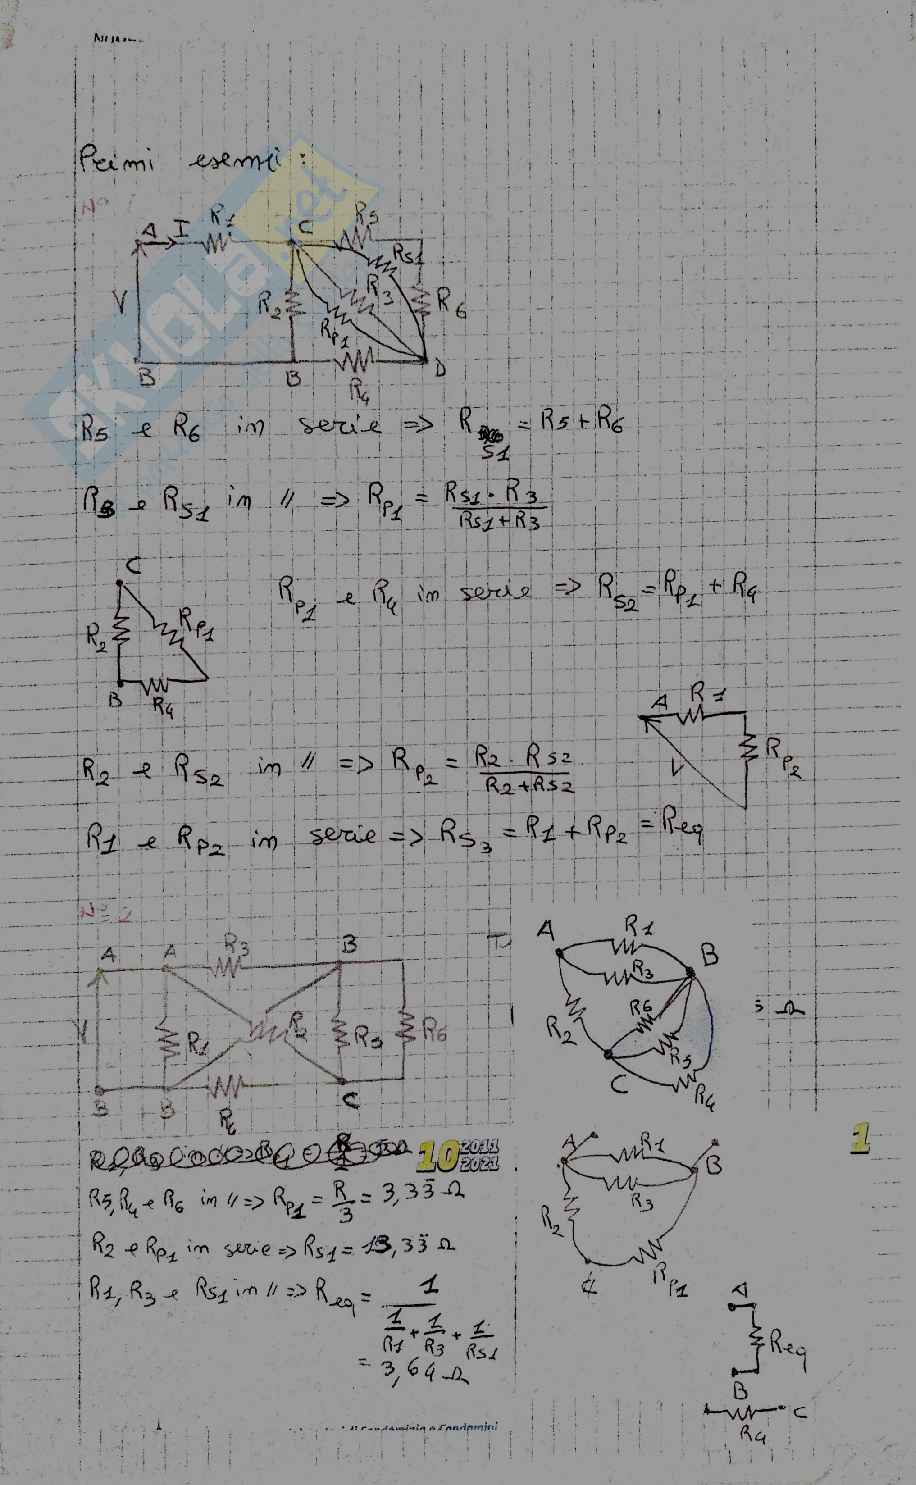 Primi esempi:
N°
A I R1 C R5
RS1
V R2 R3 R6
RP1
B B R4 D
R5 e R6 in serie => RS1 = R5 + R6
R3 e RS1 in // => RP1 = RS1 · R3 / RS1 + R3
C
R2 RP1
B R4
RP1 e R4 in serie => RS2 = RP1 + R4
A R1
V RP2
R2 e RS2 in // => RP2 = R2 · RS2 / R2 + RS2
R1 e RP2 in serie => RS3 = R1 + RP2 = Req
N° 2
A A R3 B
V R1 R2 R5 R6
B B R4 C
A R1 B
R3
R2 R6
R5
C R4
Ω
R5, R4 e R6 in // => RP1 = R/3 = 3,33 Ω
R2 e RP1 in serie => RS1 = 13,33 Ω
R1, R3 e RS1 in // => Req = 1 / 1/R1 + 1/R3 + 1/RS1
= 3,64 Ω
A R1 B
R3
R2
C RP1
A
Req
B
C
R4
SKUOLA.net
10 2011 2021
1